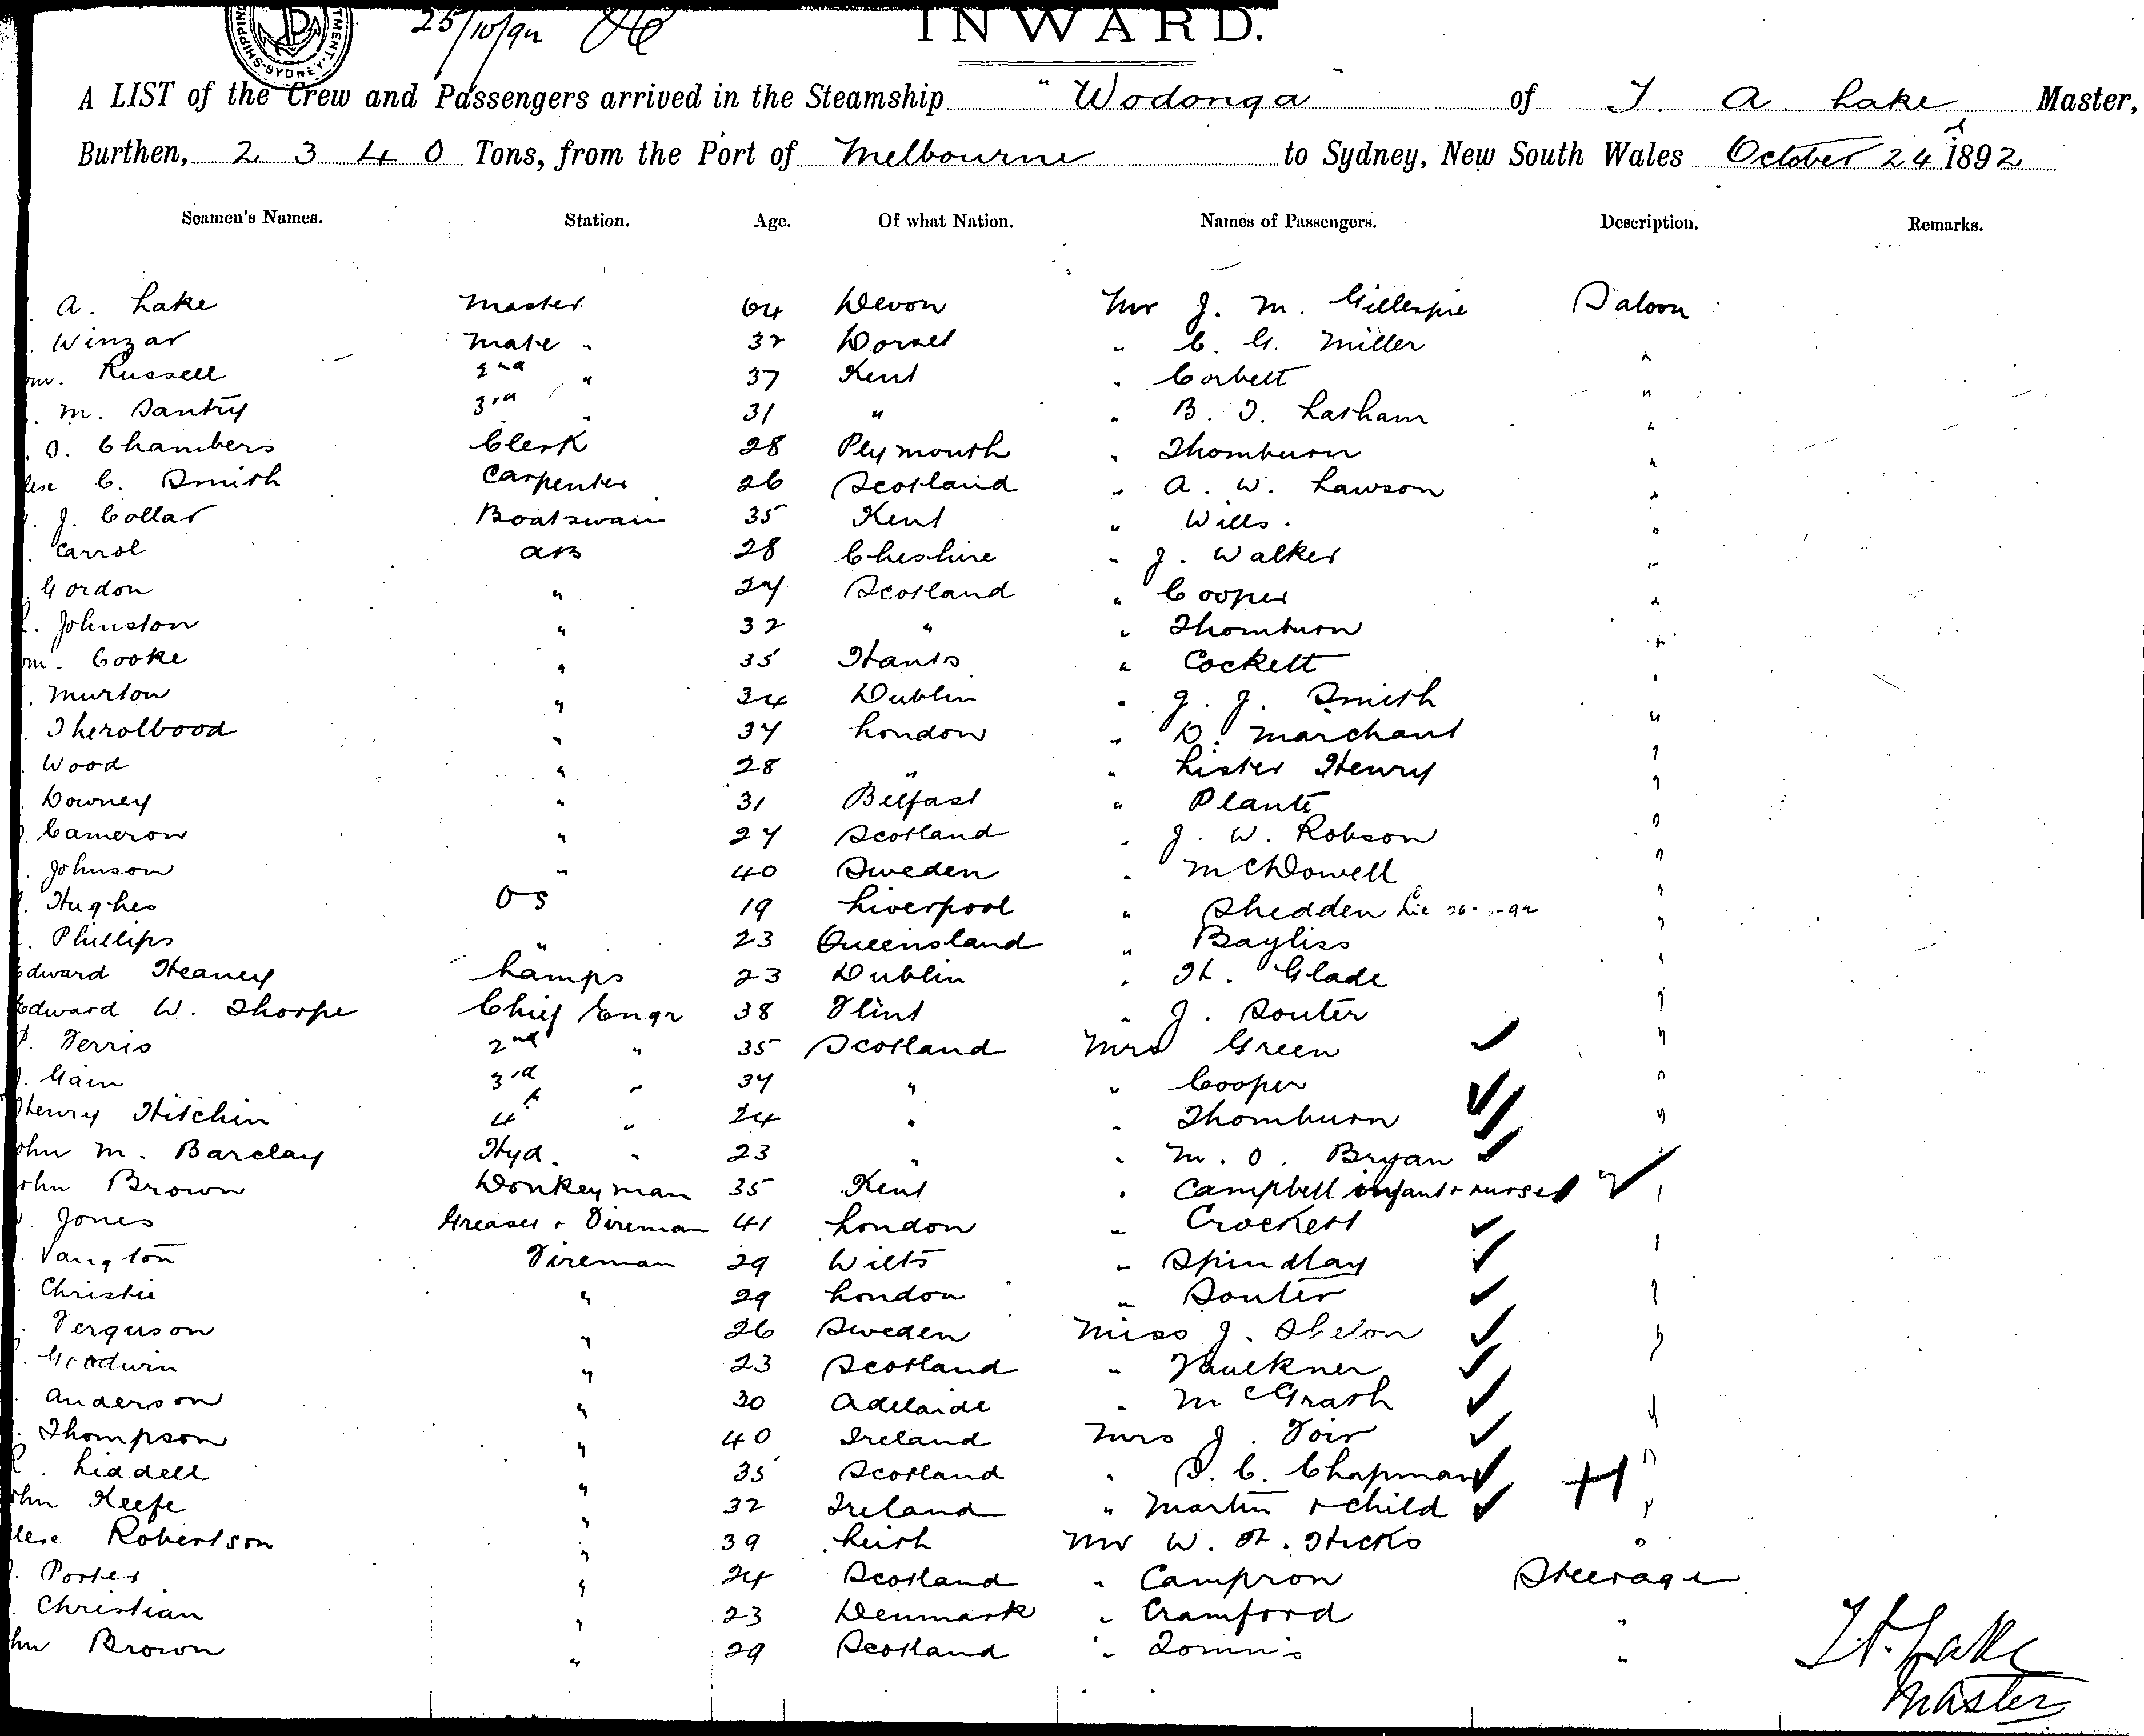 SHIPPING
TMENT-SYDNEY
25/10/92
INWARD.
A LIST of the Crew and Passengers arrived in the Steamship "Wodonga" of T. A. Lake Master,
Burthen, 2 3 4 0 Tons, from the Port of Melbourne to Sydney, New South Wales October 24 1892
Seamen's Names. Station. Age. Of what Nation. Names of Passengers. Description. Remarks.
A. Lake Master 64 Devon Mr J. M. Gillespie Saloon
Winzar Mate " 32 Dorset " C. G. Miller "
Russell 2nd " 37 Kent " Corbett "
M. Santry 3rd " 31 " " B. T. Latham "
Chambers Clerk 28 Plymouth " Thomburn "
C. Smith Carpenter 26 Scotland " A. W. Lawson "
J. Collar Boatswain 35 Kent " Wills. "
Carrol AB 28 Cheshire " J. Walker "
Gordon " 24 Scotland " Cooper "
Johnston " 32 " " Thomburn "
m. Cooke " 35 Hants " Cockett "
Murton " 34 Dublin " G. J. Smith "
Therolbood " 34 London " D. Marchant "
Wood " 28 " " Lister Henry "
Downey " 31 Belfast " Plante "
Cameron " 27 Scotland " J. W. Robson "
Johnson " 40 Sweden " McDowell "
Hughes OS 19 Liverpool " Shedden "
Phillips " 23 Queensland " Bayliss "
Edward Heaney Lamps 23 Dublin " H. Glade "
Edward W. Thorpe Chief Engr 38 Flint " J. Souter "
Ferris 2nd " 35 Scotland Mrs Green "
Gain 3rd " 34 " " Cooper "
Henry Hitchin 4th " 24 " " Thomburn "
ohn M. Barclay Hyd. " 23 " " M. O. Bryan "
ohn Brown Donkeyman 35 Kent " Campbell infant + nurse "
Jones Greaser + Fireman 41 London " Crockett
Vangton Fireman 29 Wilts " Spindlay "
Christie " 29 London " Souter "
Ferguson " 26 Sweden Miss J. Shelon "
Goodwin " 23 Scotland " Faulkner
Anderson " 30 Adelaide " McGrath "
Thompson " 40 Ireland Mrs J. Foir
Liddell " 35 Scotland " S. C. Chapman "
ohn Keefe " 32 Ireland " Martin + child "
Robertson " 39 Leith Mr W. H. Hicks "
Porter " 24 Scotland " Campron Steerage
Christian " 23 Denmark " Cramford "
hn Brown " 29 Scotland " "
T. A. Lake
Master